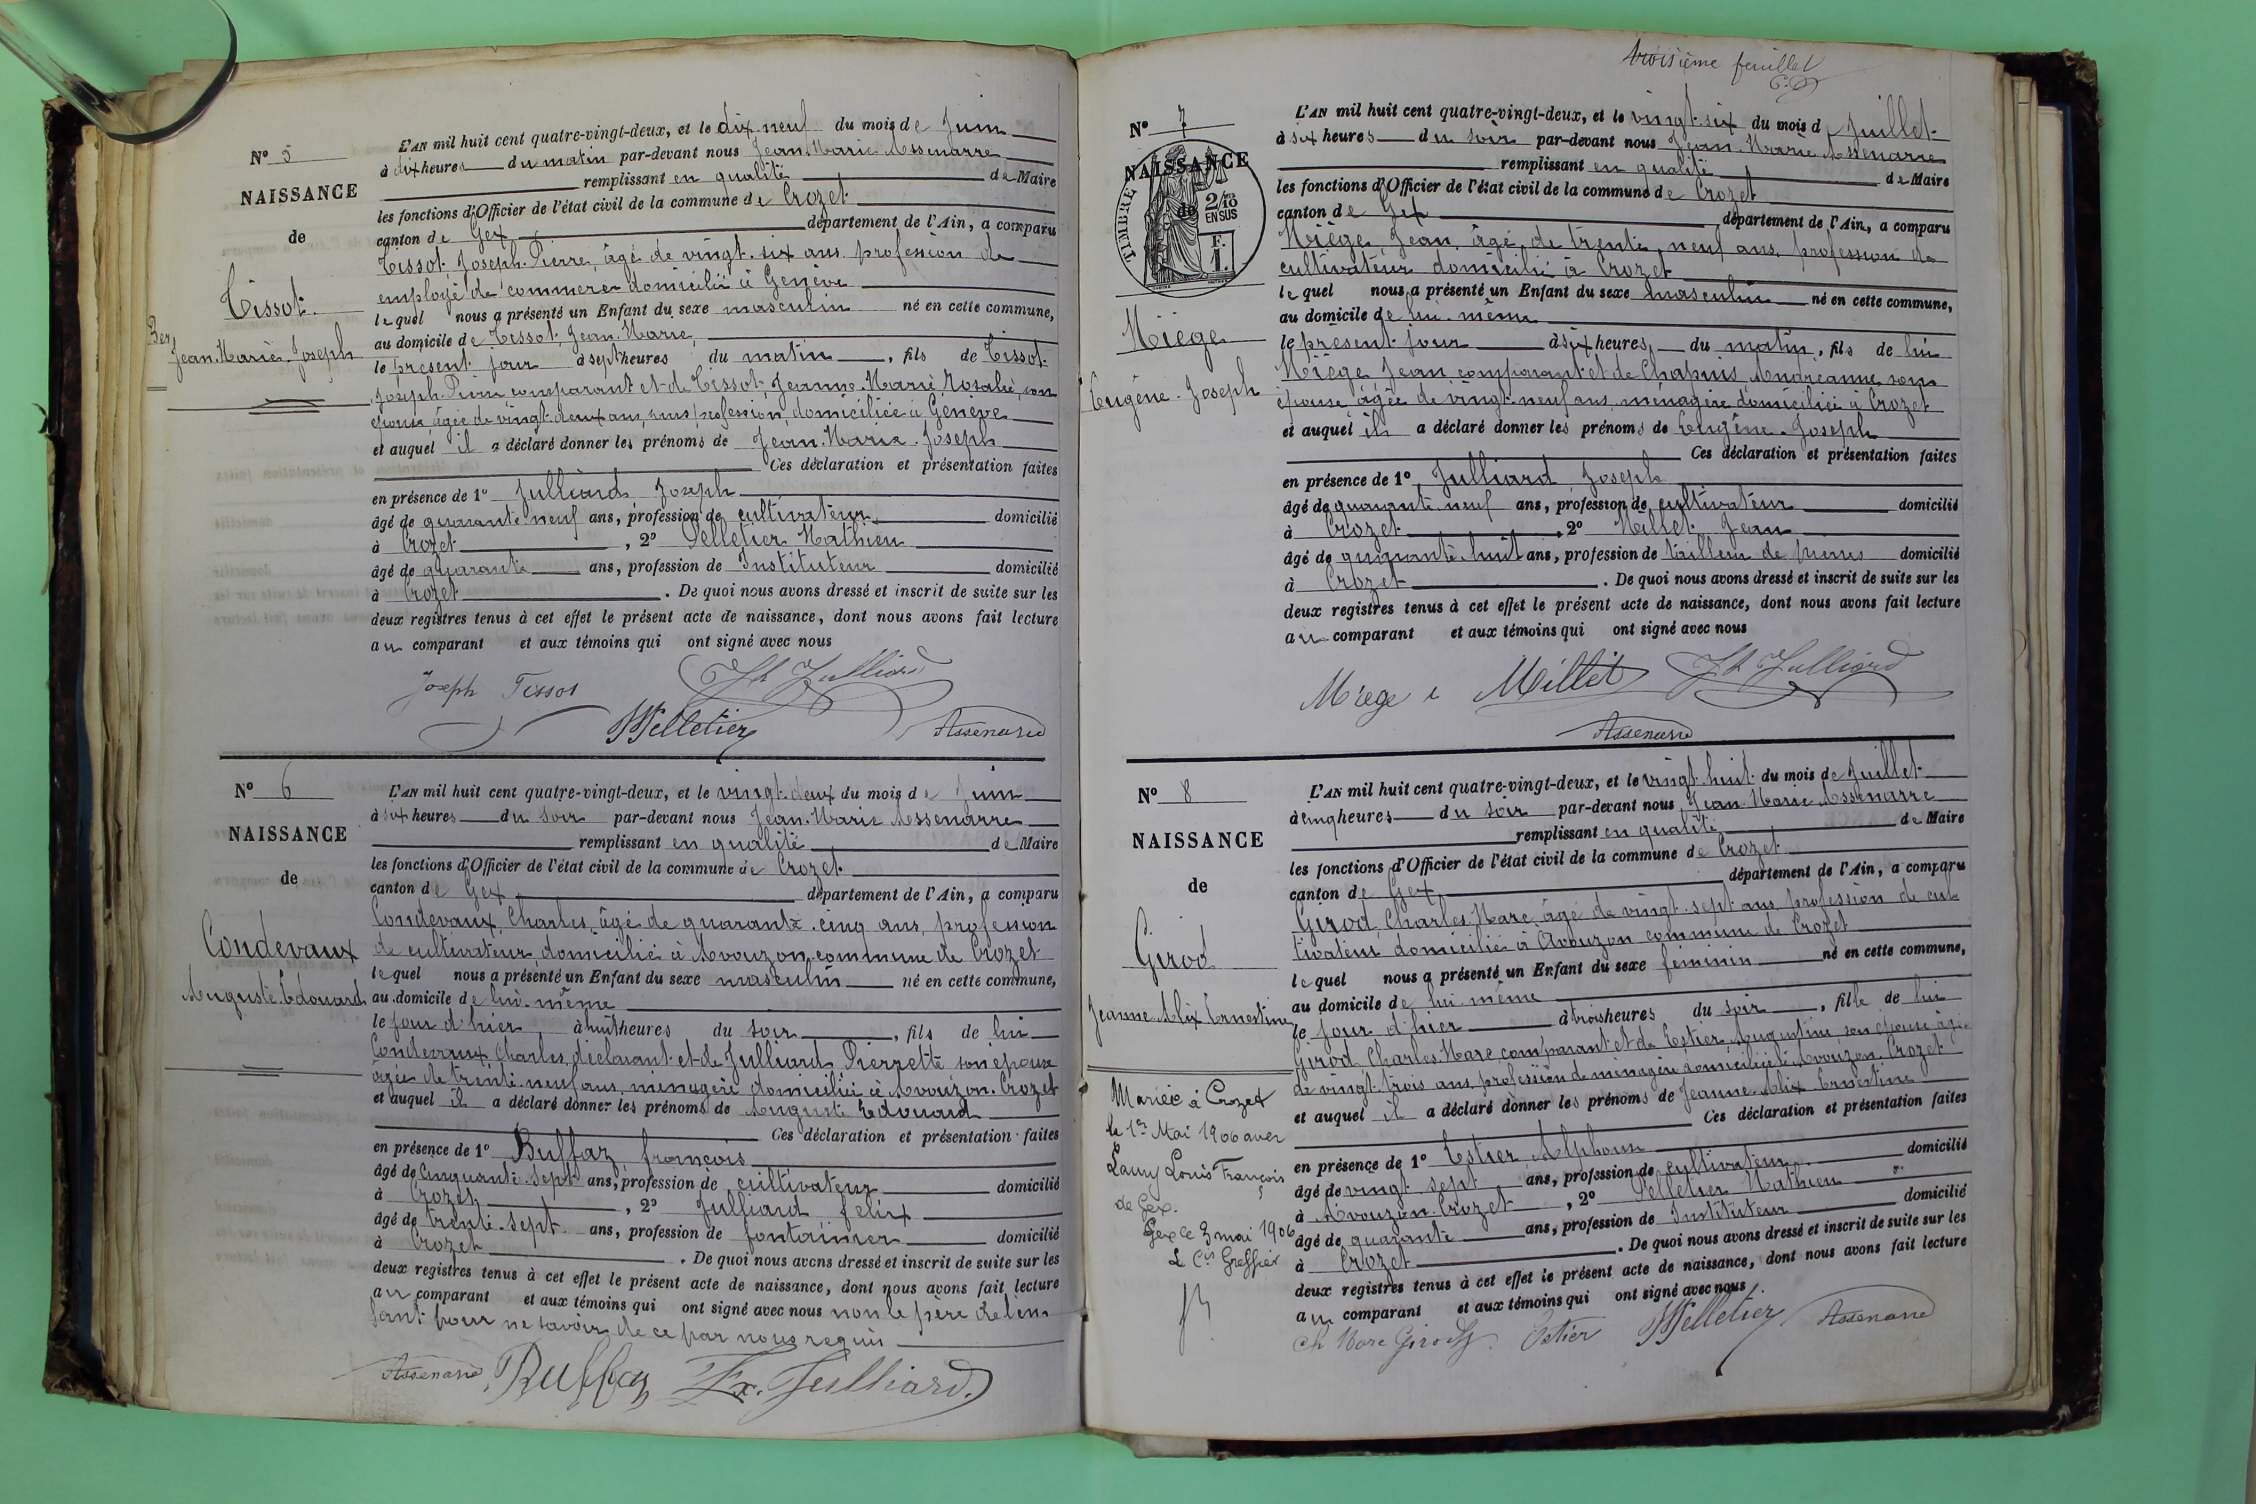 N° 5
NAISSANCE
de
Tissot
Jean-Marie-Joseph
L'AN mil huit cent quatre-vingt-deux, et le dix neuf du mois de Juin
à dix heures du matin par-devant nous Jean-Marie Assenarre
remplissant en qualité de Maire
les fonctions d'Officier de l'état civil de la commune de Crozet
canton de Gex département de l'Ain, a comparu
Tissot Joseph-Pierre, âgé de vingt-six ans profession de
employé de commerce domicilié à Genève
lequel nous a présenté un Enfant du sexe masculin né en cette commune,
au domicile de Tissot Jean-Marie,
le présent jour à sept heures du matin, fils de Tissot
Joseph-Pierre comparant et de Tissot Jeanne-Marie Rosalie, son
épouse âgée de vingt-deux ans, sans profession domiciliée à Genève
et auquel il a déclaré donner les prénoms de Jean-Marie-Joseph
Ces déclaration et présentation faites
en présence de 1° Julliard Joseph
âgé de quarante-neuf ans, profession de cultivateur domicilié
à Crozet, 2° Pelletier Mathieu
âgé de quarante ans, profession de Instituteur domicilié
à Crozet. De quoi nous avons dressé et inscrit de suite sur les
deux registres tenus à cet effet le présent acte de naissance, dont nous avons fait lecture
au comparant et aux témoins qui ont signé avec nous
Joseph Tissot Jh Julliard
Pelletier Assenarre
N° 6
NAISSANCE
de
Condevaux
Auguste-Edouard
L'AN mil huit cent quatre-vingt-deux, et le vingt-deux du mois de Juin
à six heures du soir par-devant nous Jean-Marie Assenarre
remplissant en qualité de Maire
les fonctions d'Officier de l'état civil de la commune de Crozet
canton de Gex département de l'Ain, a comparu
Condevaux, Charles, âgé de quarante-cinq ans, profession
de cultivateur domicilié à Avouzon commune de Crozet
lequel nous a présenté un Enfant du sexe masculin né en cette commune,
au domicile de lui-même
le jour d'hier, à huit heures du soir, fils de lui
Condevaux Charles, déclarant et de Julliard Pierrette son épouse
âgée de trente-neuf ans, ménagère domiciliée à Avouzon-Crozet
et auquel il a déclaré donner les prénoms de Auguste Edouard
Ces déclaration et présentation faites
en présence de 1° Buffaz françois
âgé de cinquante-sept ans, profession de cultivateur domicilié
à Crozet, 2° Julliard félix
âgé de trente-sept ans, profession de fontainier domicilié
à Crozet. De quoi nous avons dressé et inscrit de suite sur les
deux registres tenus à cet effet le présent acte de naissance, dont nous avons fait lecture
au comparant et aux témoins qui ont signé avec nous non le père de l'en-
fant pour ne savoir de ce par nous requis
Assenarre Buffaz Fx. Julliard
troisième feuillet
N° 7
NAISSANCE
de
TIMBRE
2/10
EN SUS
F.
1.
Miège
Eugène-Joseph
L'AN mil huit cent quatre-vingt-deux, et le vingt-six du mois de Juillet
à six heures du soir par-devant nous Jean-Marie Assenarre
remplissant en qualité de Maire
les fonctions d'Officier de l'état civil de la commune de Crozet
canton de Gex département de l'Ain, a comparu
Miège, Jean, âgé de trente-neuf ans, profession de
cultivateur domicilié à Crozet
lequel nous a présenté un Enfant du sexe masculin né en cette commune,
au domicile de lui-même
le présent jour à six heures, du matin, fils de lui
Miège Jean comparant et de Chapuis Andréanne son
épouse âgée de vingt-neuf ans, ménagère domiciliée à Crozet
et auquel il a déclaré donner les prénoms de Eugène-Joseph
Ces déclaration et présentation faites
en présence de 1° Julliard Joseph
âgé de quarante-neuf ans, profession de cultivateur domicilié
à Crozet, 2° Millet Jean
âgé de quarante-huit ans, profession de tailleur de pierres domicilié
à Crozet. De quoi nous avons dressé et inscrit de suite sur les
deux registres tenus à cet effet le présent acte de naissance, dont nous avons fait lecture
au comparant et aux témoins qui ont signé avec nous
Miege Millet Jh Julliard
Assenarre
N° 8
NAISSANCE
de
Girod
Jeanne Alix Ernestine
Mariée à Crozet
le 1er Mai 1906 avec
Lamy Louis François
de Gex.
Gex le 3 mai 1906
Le Cis Greffier
L'AN mil huit cent quatre-vingt-deux, et le vingt-huit du mois de Juillet
à cinq heures du soir par-devant nous Jean-Marie Assenarre
remplissant en qualité de Maire
les fonctions d'Officier de l'état civil de la commune de Crozet
canton de Gex département de l'Ain, a comparu
Girod, Charles-Marc, âgé de vingt-sept ans, profession de cul-
tivateur domicilié à Avouzon commune de Crozet
lequel nous a présenté un Enfant du sexe féminin né en cette commune,
au domicile de lui-même
le jour d'hier à trois heures du soir, fille de lui
Girod Charles-Marc, comparant et de Estier, Augustine, son épouse âgée
de vingt-trois ans, profession de ménagère domiciliée à Avouzon-Crozet
et auquel il a déclaré donner les prénoms de Jeanne-Alix-Ernestine
Ces déclaration et présentation faites
en présence de 1° Estier Alphonse
âgé de vingt-sept ans, profession de cultivateur domicilié
à Avouzon-Crozet, 2° Pelletier Mathieu
âgé de quarante ans, profession de Instituteur domicilié
à Crozet. De quoi nous avons dressé et inscrit de suite sur les
deux registres tenus à cet effet le présent acte de naissance, dont nous avons fait lecture
au comparant et aux témoins qui ont signé avec nous
Ch Marc Girod Estier Pelletier Assenarre